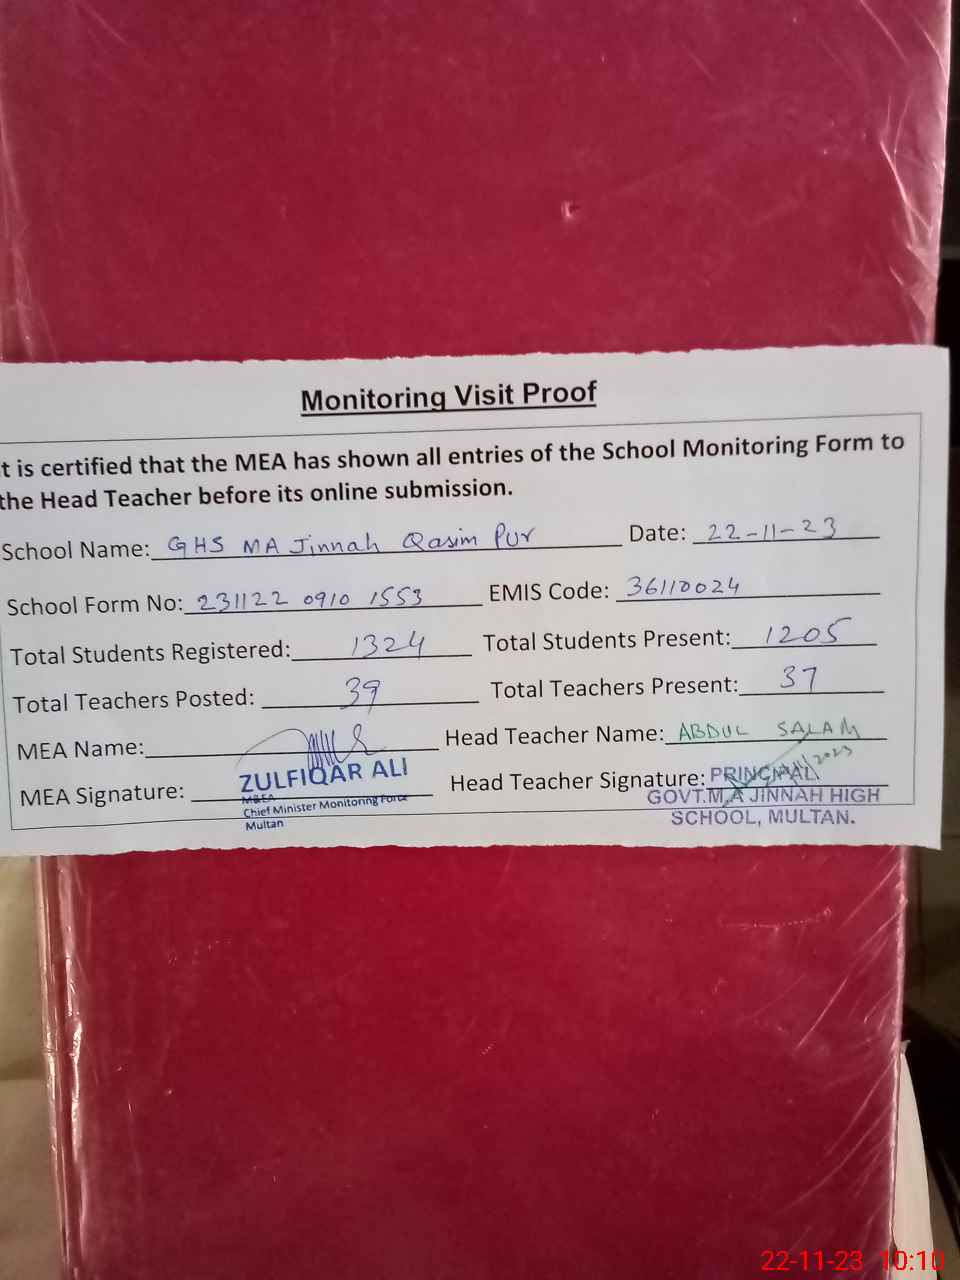 Monitoring Visit Proof
t is certified that the MEA has shown all entries of the School Monitoring Form to
the Head Teacher before its online submission.
School Name: GHS MA Jinnah Qasim Pur Date: 22-11-23
School Form No: 231122 0910 1553 EMIS Code: 36110024
Total Students Registered: 1324 Total Students Present: 1205
Total Teachers Posted: 39 Total Teachers Present: 37
MEA Name: Head Teacher Name: ABDUL SALAM
ZULFIQAR ALI
MEA Signature: Head Teacher Signature: PRINCIPAL
M&EA
Chief Minister Monitoring Force
Multan
GOVT.M.A JINNAH HIGH
SCHOOL, MULTAN.
22-11-23 10:10